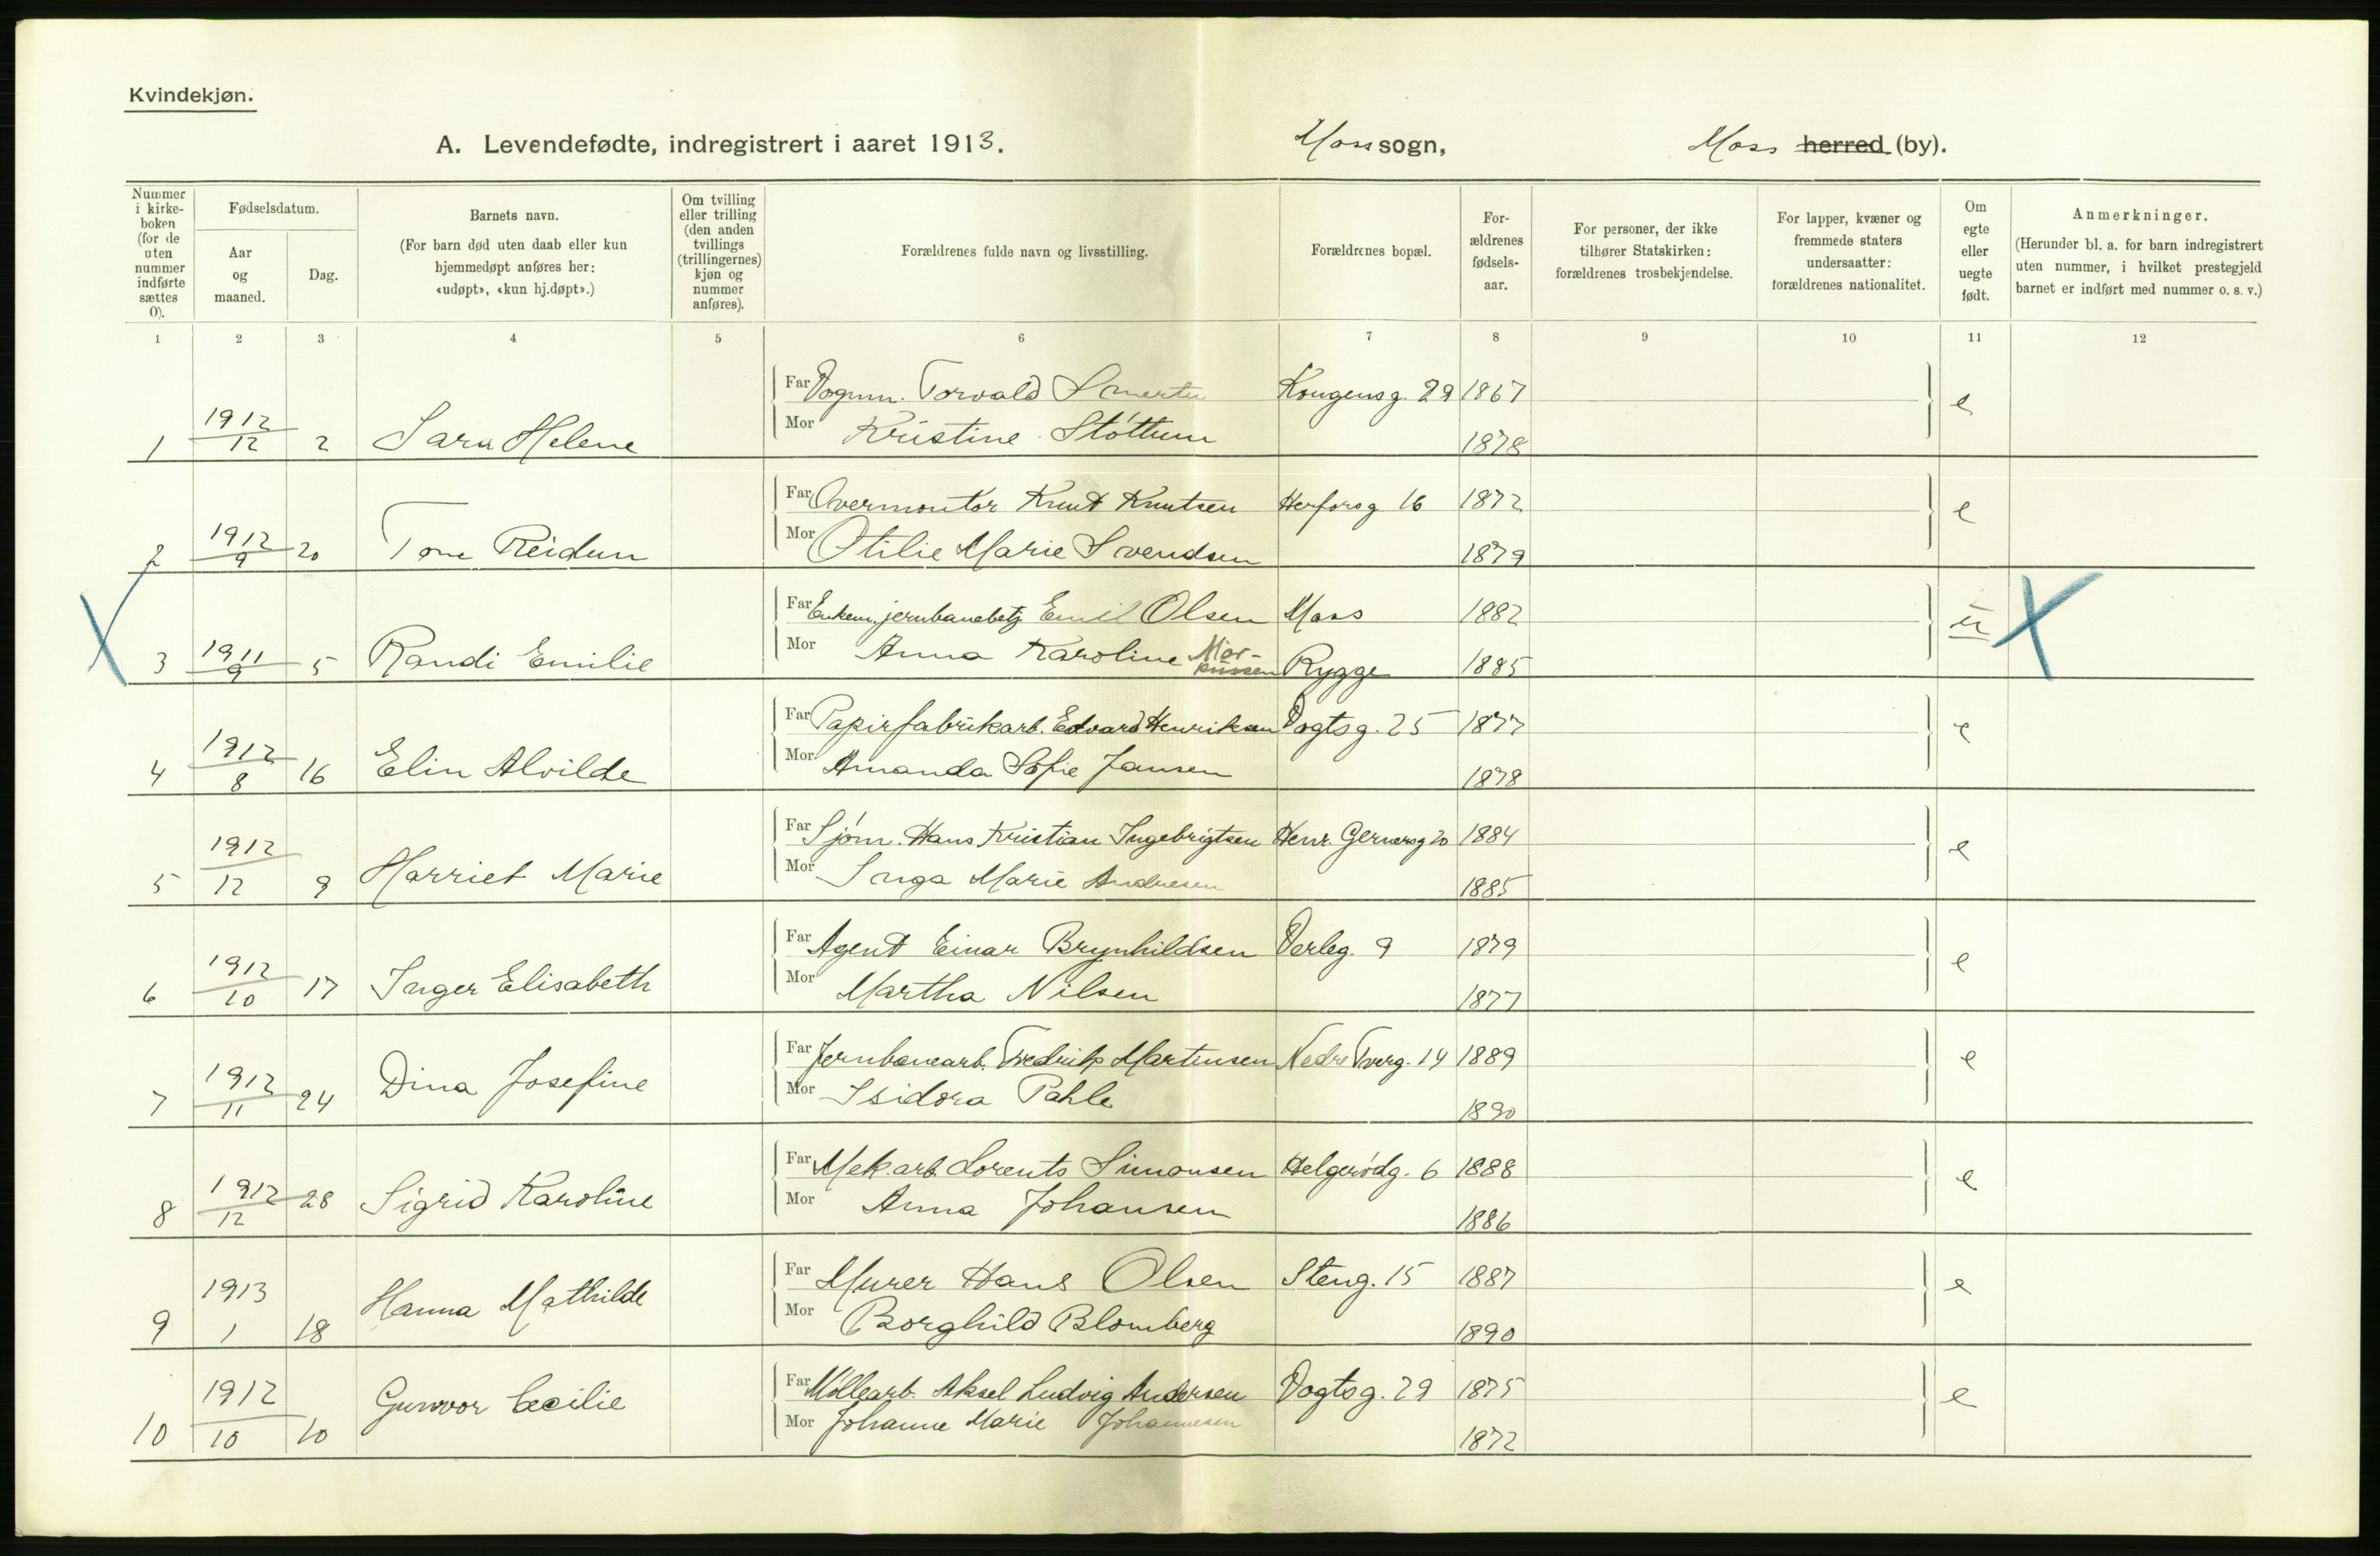 Kvindekjøn.
A. Levendefødte, indregistrert i aaret 1913. Moss sogn, Moss herred (by).
Nummer i kirkeboken (for de uten nummer indførte sættes 0).
Fødselsdatum.
Aar og maaned.
Dag.
Barnets navn.
(For barn død uten daab eller kun hjemmedøpt anføres her: «udøpt», «kun hj.døpt».)
Om tvilling eller trilling (den anden tvillings (trillingernes) kjøn og nummer anføres).
Forældrenes fulde navn og livsstilling.
Forældrenes bopæl.
Forældrenes fødselsaar.
For personer, der ikke tilhører Statskirken: forældrenes trosbekjendelse.
For lapper, kvæner og fremmede staters undersaatter: forældrenes nationalitet.
Om egte eller uegte født.
Anmerkninger.
(Herunder bl. a. for barn indregistrert uten nummer, i hvilket prestegjeld barnet er indført med nummer o. s. v.)
1 2 3 4 5 6 7 8 9 10 11 12
Far Vognm. Torvald Kongensg. 29 1867 e
1 1912/12 2 Sara Helene Mor Kristine Støttum 1878
Far Overmontør Knut Knutsen Herforsg 16 1872 e
2 1912/9 20 Tone Reidun Mor Otilie Marie Svendsen 1879
Far Enkem. jernbanebetj Emil Olsen Moss 1882 u
3 1911/9 5 Randi Emilie Mor Anna Karoline Markussen Rygge 1885
Far Papirfabrikarb. Edvard Henriksen Vogtsg. 25 1877 e
4 1912/8 16 Elin Alvilde Mor Amanda Sofie Jansen 1878
Far Sjøm. Hans Kristian Ingebrigtsen Henr. Gernersg 20 1884 e
5 1912/12 9 Harriet Marie Mor Inga Marie Andresen 1885
Far Agent Einar Brynhildsen Verleg. 9 1879 e
6 1912/10 17 Inger Elisabeth Mor Martha Nilsen 1877
Far Jernbanearb. Fredrik Martinsen Nedre Tverg. 14 1889 e
7 1912/11 24 Dina Josefine Mor Isidora Pahle 1890
Far Mek. arb Lorents Simonsen Helgerødg. 6 1888 e
8 1912/12 28 Sigrid Karoline Mor Anna Johansen 1886
Far Murer Hans Olsen Steng. 15 1887 e
9 1913 1 18 Hanna Mathilde Mor Borghild Blomberg 1890
Far Møllearb. Aksel Ludvig Andersen Vogtsg. 29 1875 e
10 1912/10 10 Gunvor Cecilie Mor Johanne Marie Johannesen 1872